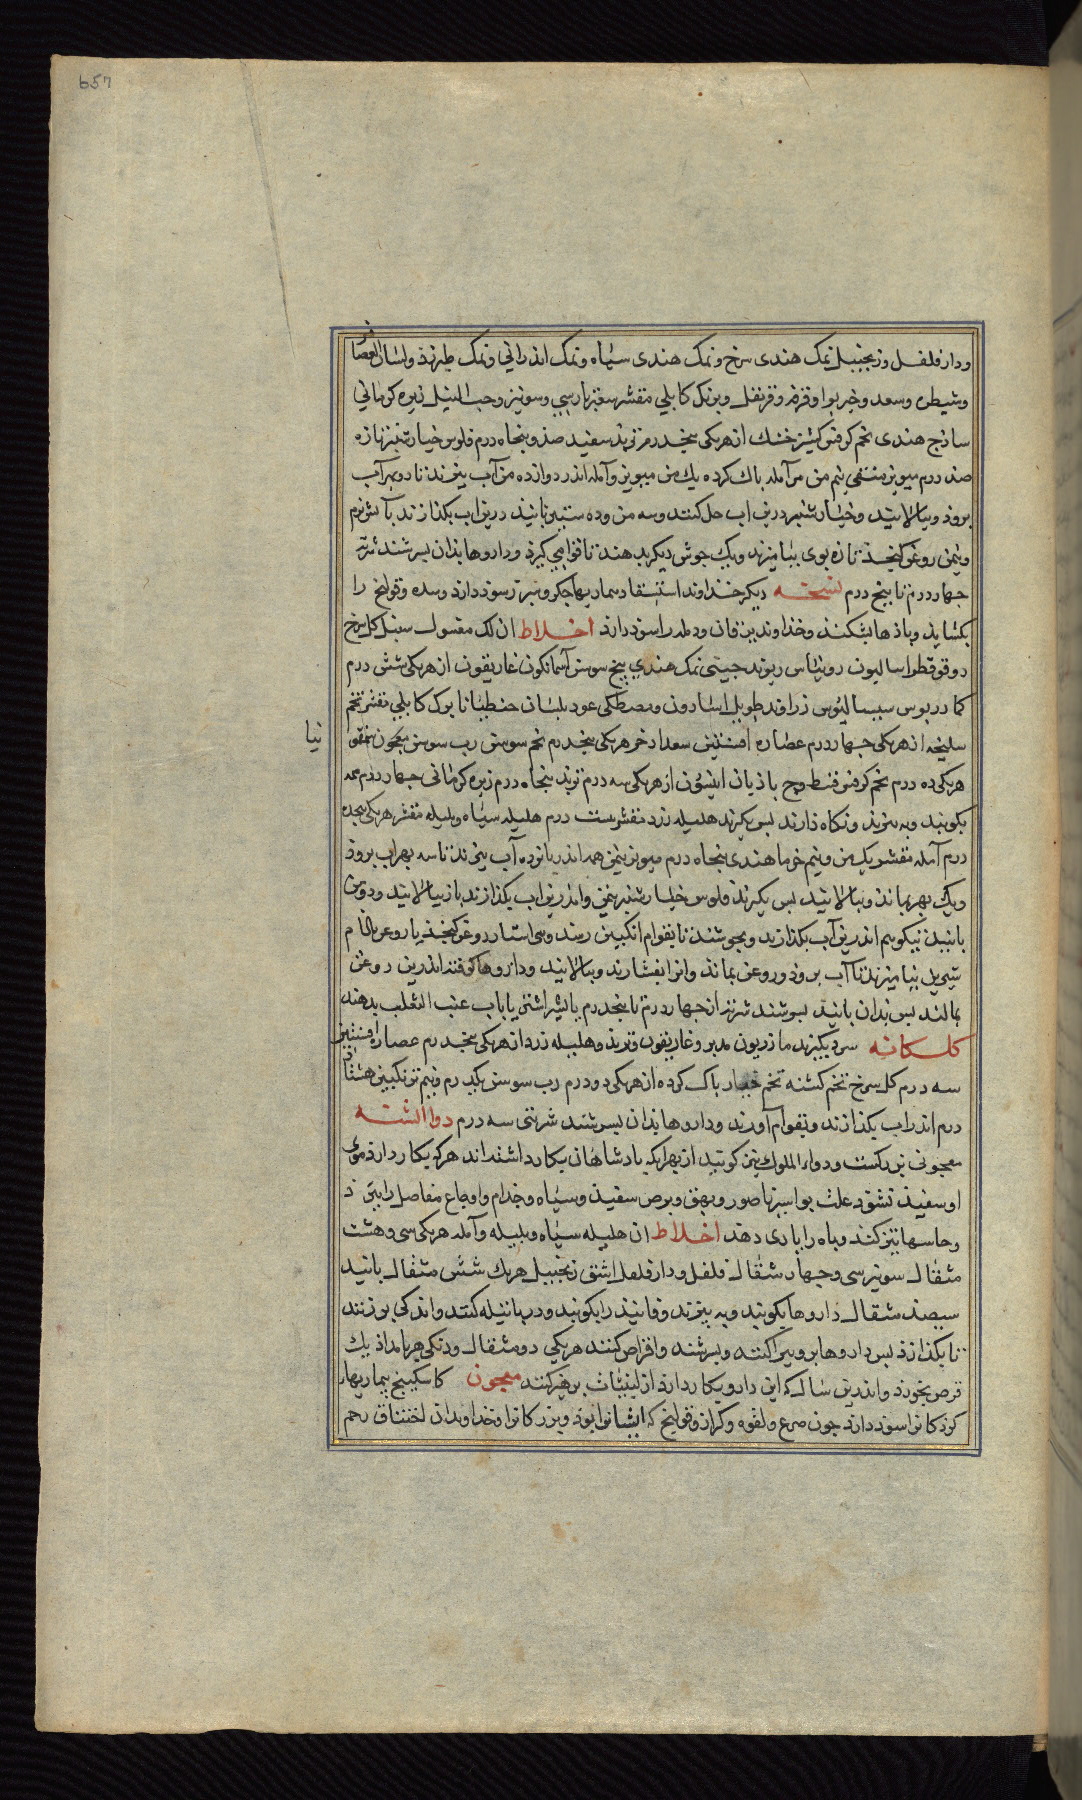 b57
ودارفلفل وزنجبیل نمک هندی سرخ ونمک هندی سیاه ونمک اندرانی ونمک طبرزد ولسان العصافیر
وشیطره وسعد وخیربوا وقرفه وقرنفل وبرنک کابلی مقشر سعتر بارسی وسونیز وحب النیل زیره کرمانی
ساذج هندی تخم کرفس کشنیز خشک از هریکی پنجدرم تربد سفید صد وپنجاه درم فلوس خیارشنبر تازه
صد درم میویز منقی نیم من من آمله باک کرده یک من میویز وآمله اندر دوازده من آب بپزند تا دو بهر آب
برود وبپالایند وخیارشنبر درین اب حل کنند وسه من وده ستیر بانیذ درین اب بکذارند بآتش نرم
ونیمن روغن کنجد تازه بوی بیامیزند ویک جوش دیکر بدهند تا قوامی کیرد وداروها بدان بسرشند شربتی
جهار درم تا پنج درم نسخته دیکر خداوند استسقا وبیماریهاء جکر وسپرز سود دارد وسده وقولنج را
بکشاید وبادها بشکند وخداوند یرقان ودمه را سود دارد اخلاط ان لک مغسول سنبل کل سرخ
دوقو فطراسالیون روناس ریوند جینی نمک هندی بیخ سوسن آسمانکون غاریقون از هریکی شش درم
کمادریوس سیسالیوس زراوند طویل اسارون ومصطکی عود بلسان جنطیانا برنک کابلی مقشر تخم
سلیخه از هریکی جهار درم عصاره افسنتین سعد اذخر هریکی پنجدرم تخم سوسن رب سوسن معجون سقمو
نیا
هریکی ده درم تخم کرفس قسط وج بادیان انیسون از هریکی سه درم تربد پنجاه درم زیره کرمانی جهار درم همه
بکوبند وبه بیزند ونکاه دارند بس بکیرند هلیله زرد مقشر بیست درم هلیله سیاه وبلیله مقشر هریکی پنجده
درم آمله مقشر یک من ونیم خرما هندی پنجاه درم میویز نیمن همه اندر پانزده آب بپزند تا سه بهر اب برود
ویک بهر بماند وبپالایند بس بکیرند فلوس خیارشنبر نیمن واندرین اب بکذارند باز بپالایند ودو من
بانیذ نیکو هم اندرین آب بکذارند وبجوشند تا بقوام انکبین رسد وسی استار روغن کنجد یا روغن بادام
شیرین بیامیزند تا آب برود وروغن بماند وانرا بفشارند وبپالایند وداروها کوفته اندرین روغن
بمالند بس بدان بانیذ بسرشند شربت از جهار درم تا پنجدرم با شیر اشتر یا باب عنب الثعلب بدهند
کلسکانه سرد بکیرند مازریون مدبر وغاریقون وتربد وهلیله زرد از هریکی پنجدرم عصاره افسنتین
سه درم کل سرخ تخم کشنه تخم خیار باک کرده از هریکی دو درم رب سوسن یکدرم ونیم ترنکبین هشتاد
درم اندر اب بکذارند وبقوام آورند وداروها بدان بسرشند شربتی سه درم دوا السنه
معجونی بزرکست ودواء الملوک نیز کویند از بهر انکه بادشاهان بکار داشته اند هرکه بکار دارد موی
او سفید نشود علت بواسیر ناصور وبهق وبرص سفید وسیاه وجذام واوجاع مفاصل را ببرد
وحاسها تیز کند وباه را یاری دهد اخلاط ان هلیله سیاه وبلیله وآمله هریکی سی وهشت
مثقال سونیز سی وجهار مثقال فلفل ودارفلفل اشق زنجبیل هریک شش مثقال بانیذ
سیصد مثقال داروها بکوبند وبه بیزند وفانیذ را بکوبند ودر باتیله کنند واندکی بوزنند
تا بکذازد بس داروها برو پراکند وبسرشند واقراص کنند هریکی دو مثقال ودنکی هر بامداد یک
قرص بخورد واندرین سال که این دارو بکار دارد از لبنیات پرهیز کنند معجون کاسکبینج بیماریهاء
کودکانرا سود دارد جون صرع ولقوه وکزاز وقولنج که ایشانرا بود وبزرکانرا وخداوندان اختناق رحم